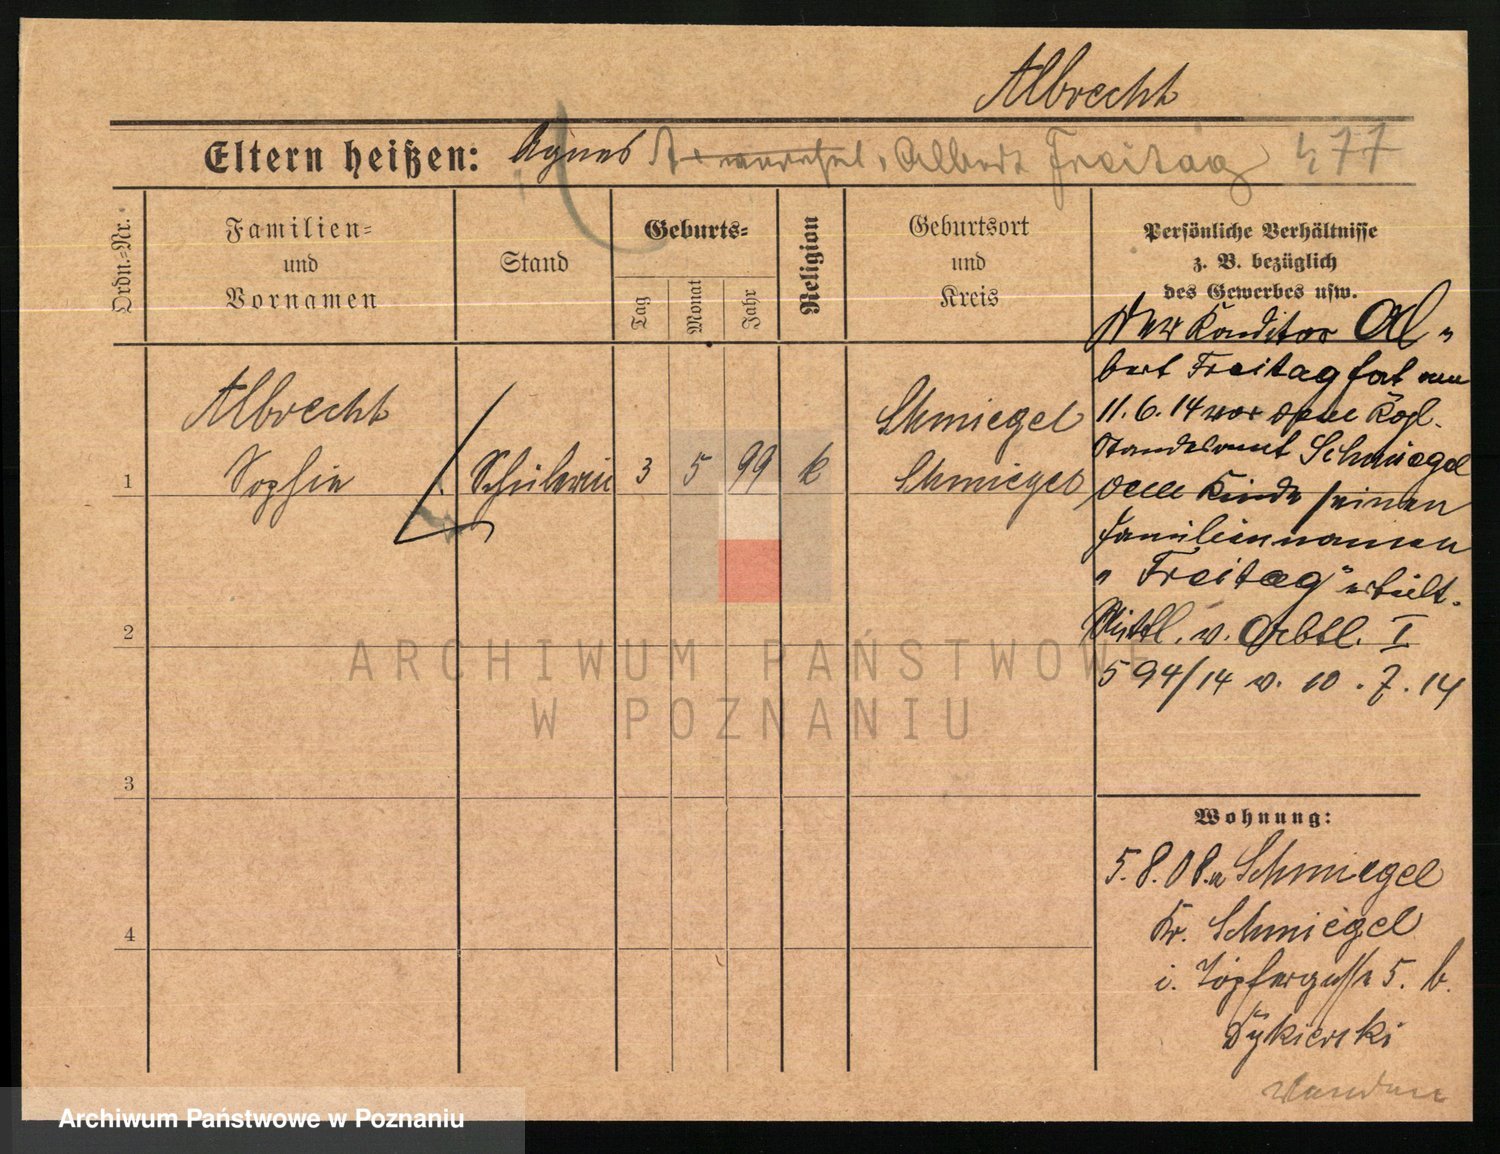 Albrecht
Eltern heißen: Agnes Albert Freitag 477
Ordn.-Nr.
Familien-
und
Vornamen
Stand
Geburts-
Tag
Monat
Jahr
Religion
Geburtsort
und
Kreis
Persönliche Verhältnisse
z. B. bezüglich
des Gewerbes usw.
Der Konditor Al-
bert Freitag hat am
11. 6. 14 vor dem Kgl.
Standesamt Schmiegel
dem Kinde seinen
Familiennamen
"Freitag" erteilt.
Mittl. v. Abtl. I
594/14 v. 10. 7. 14
Albrecht
Sophie
1
Schülerin
3 5 99 k
Schmiegel
Schmiegel
2
3
4
Wohnung:
5. 8. 08. Schmiegel
Kr. Schmiegel
i. Töpfergasse 5. b.
Dykierski
ARCHIWUM PAŃSTWOWE
W POZNANIU
Archiwum Państwowe w Poznaniu